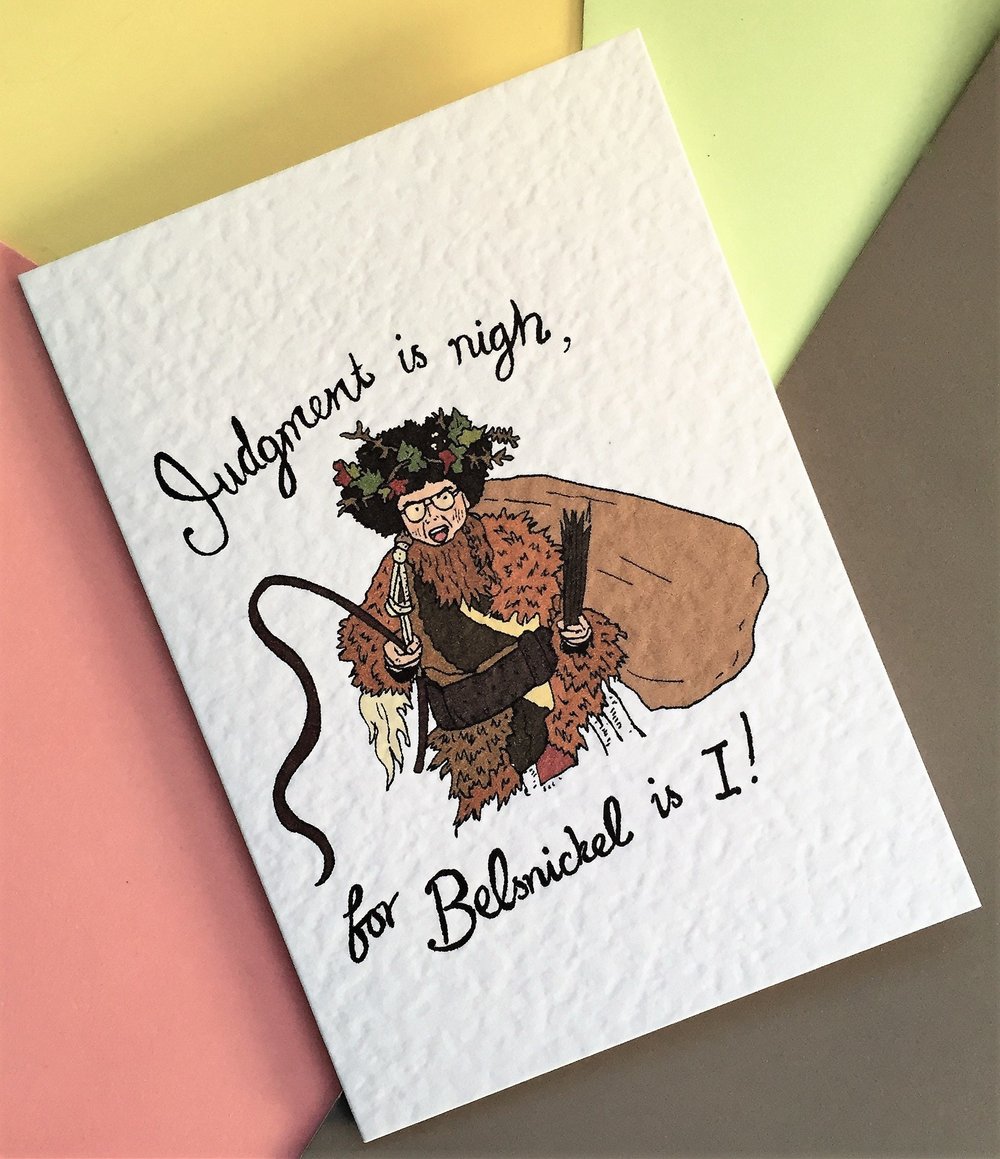 Judgment is nigh,
for Belsnickel is I!